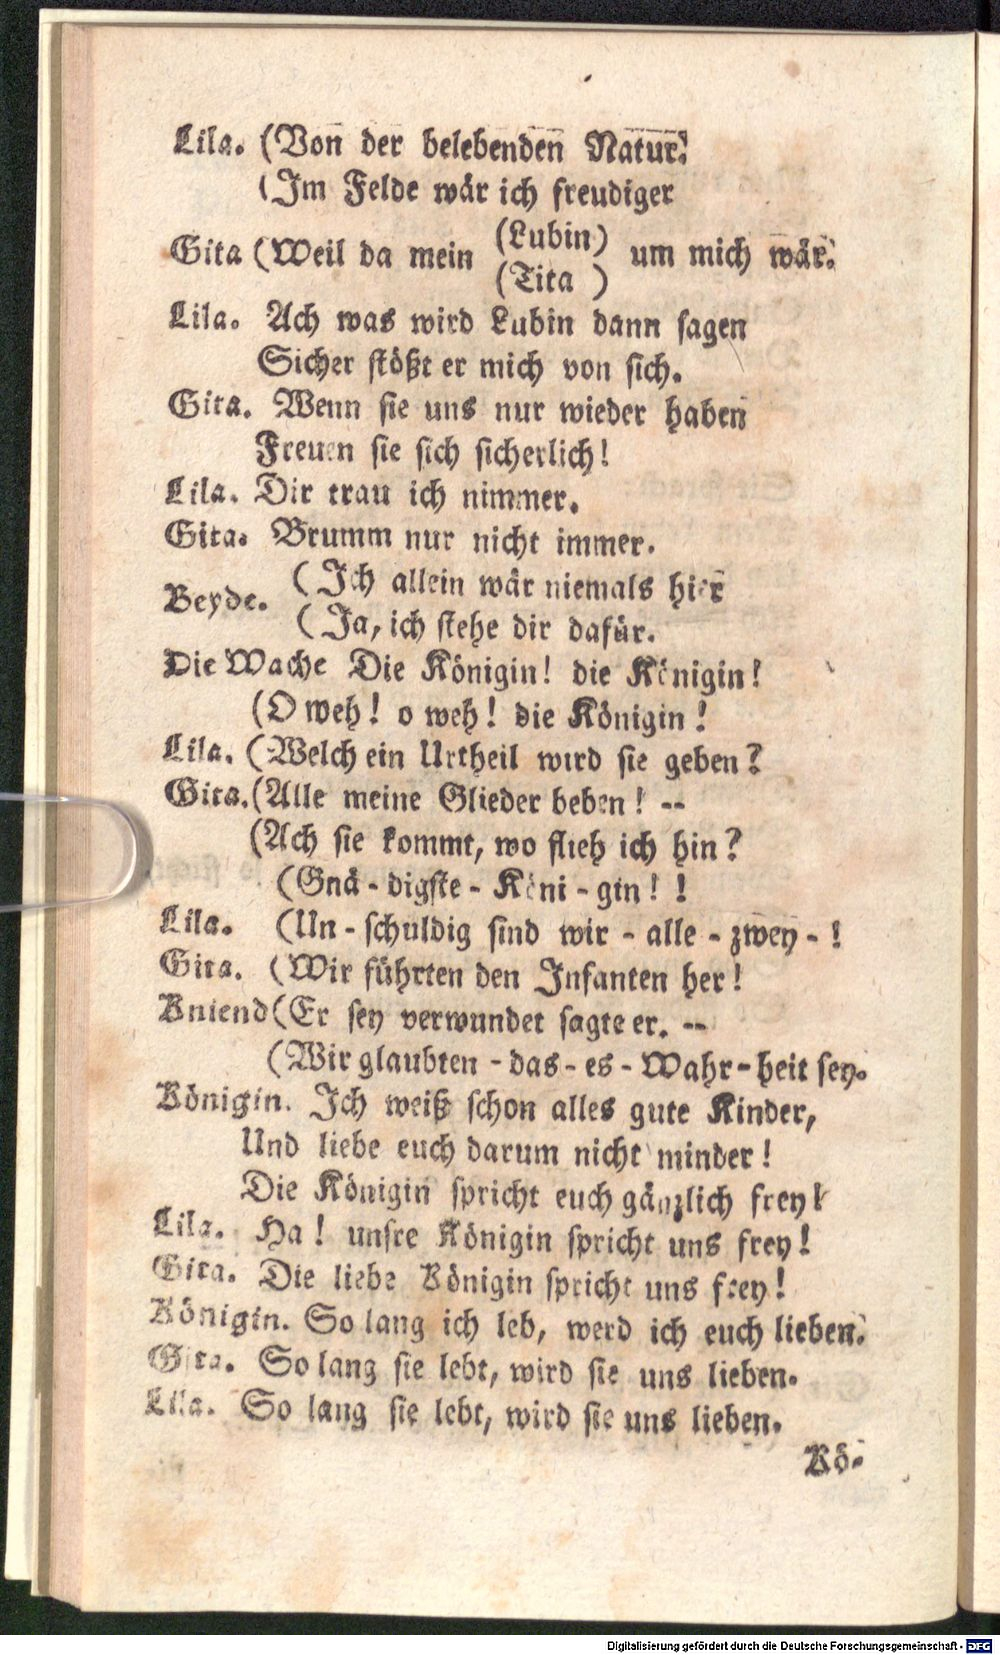 Lila. (Von der belebenden Natur!
(Im Felde wär ich freudiger
(Lubin)
Gita (Weil da mein um mich wär.
(Tita )
Lila. Ach was wird Lubin dann sagen
Sicher stößt er mich von sich.
Gita. Wenn sie uns nur wieder haben
Freuen sie sich sicherlich!
Lila. Dir trau ich nimmer.
Gita. Brumm nur nicht immer.
(Ich allein wär niemals hier
Beyde.
(Ja, ich stehe dir dafür.
Die Wache Die Königin! die Königin!
(O weh! o weh! die Königin!
Lila. (Welch ein Urtheil wird sie geben?
Gita. (Alle meine Glieder beben! --
(Ach sie kommt, wo flieh ich hin?
(Gnä - digste - Köni - gin! !
Lila. (Un - schuldig sind wir - alle - zwey - !
Gita. (Wir führten den Infanten her!
Kniend (Er sey verwundet sagte er. --
(Wir glaubten - das - es - Wahr - heit sey.
Königin. Ich weiß schon alles gute Kinder,
Und liebe euch darum nicht minder!
Die Königin spricht euch gänzlich frey!
Lila. Ha! unsre Königin spricht uns frey!
Gita. Die liebe Königin spricht uns frey!
Königin. So lang ich leb, werd ich euch lieben.
Gita. So lang sie lebt, wird sie uns lieben.
Lila. So lang sie lebt, wird sie uns lieben.
Kö-
Digitalisierung gefördert durch die Deutsche Forschungsgemeinschaft - DFG